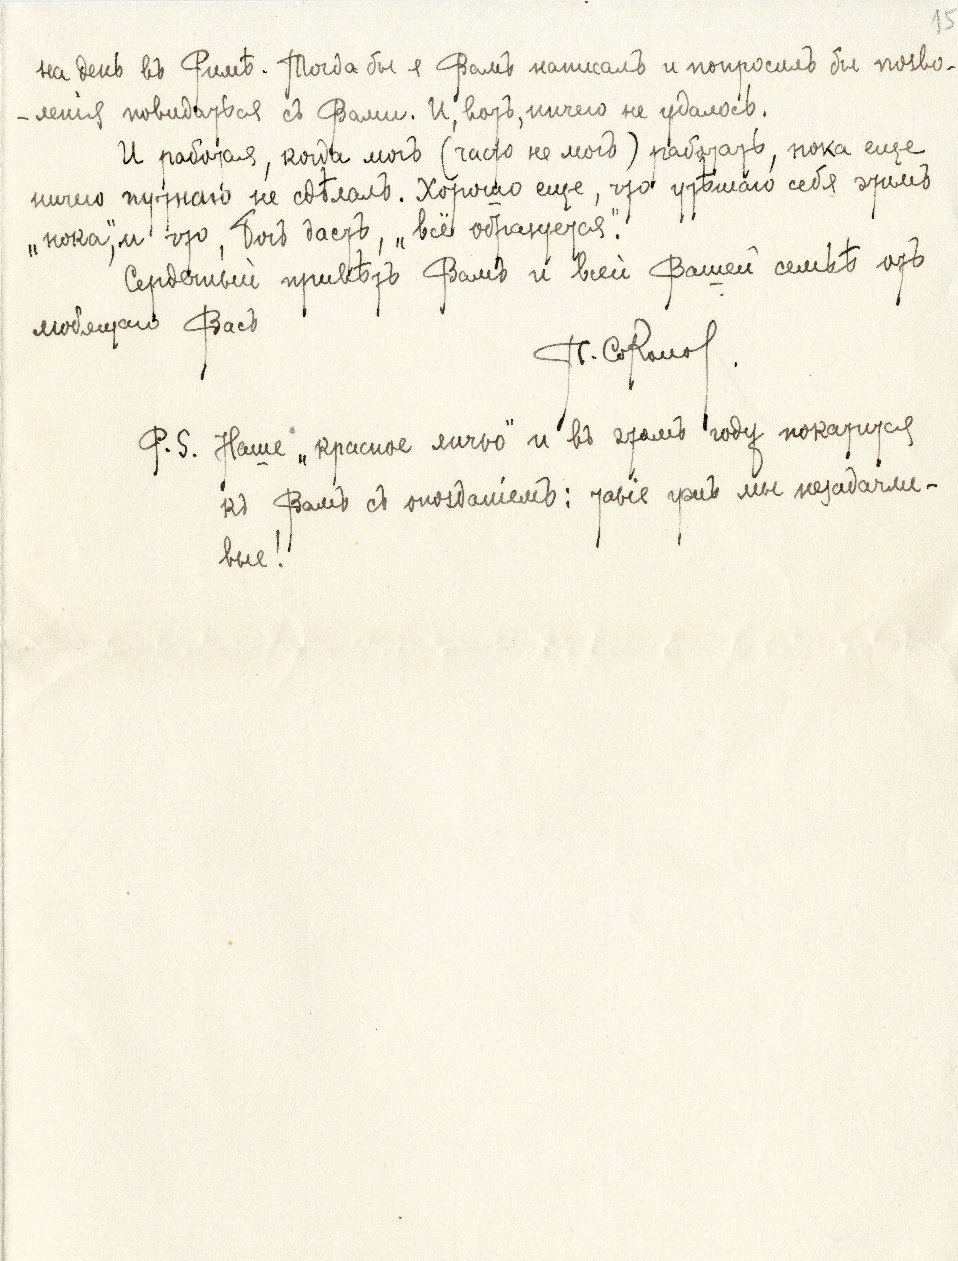 15
на день въ Римѣ. Тогда бы я Вамъ написалъ и попросилъ бы позво-
-ленія повидаться съ Вами. И, вотъ, ничего не удалось.
И работая, когда могъ (часто не могъ) работать, пока еще
ничего путнаго не сдѣлалъ. Хорошо еще, что утѣшаю себя этимъ
„пока", и что, Богъ дастъ, „всё образуется".
Сердечный привѣтъ Вамъ и всей Вашей семьѣ отъ
любящаго Васъ
П. Соколов.
P.S. Наше „красное яичко" и въ этомъ году покатится
къ Вамъ съ опозданіемъ: такіе ужъ мы незадачли-
вые!